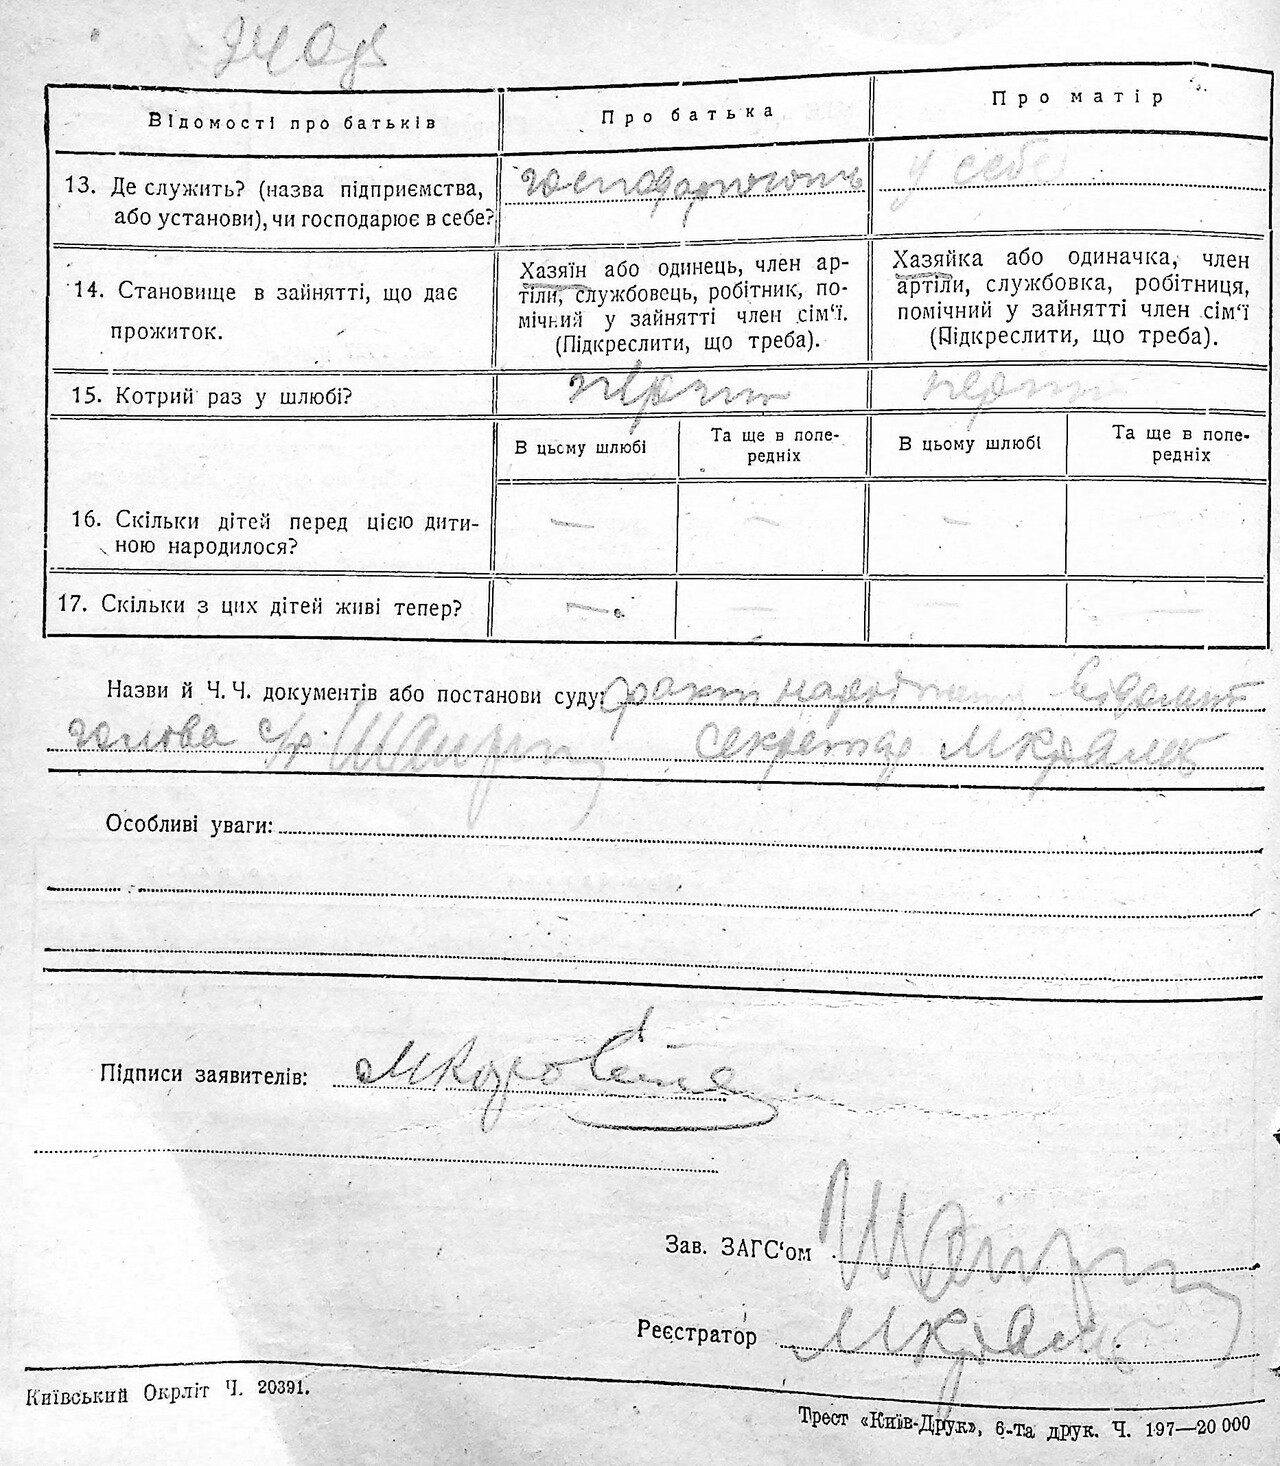 Відомості про батьків
Про батька
Про матір
13. Де служить? (назва підприємства,
або установи), чи господарює в себе?
господарюють
у себе
14. Становище в зайнятті, що дає
прожиток.
Хазяїн або одинець, член ар-
тіли, службовець, робітник, по-
мічний у зайнятті член сім'ї.
(Підкреслити, що треба).
Хазяйка або одиначка, член
артіли, службовка, робітниця,
помічний у зайнятті член сім'ї
(Підкреслити, що треба).
15. Котрий раз у шлюбі?
В цьому шлюбі
Та ще в попе-
редніх
В цьому шлюбі
Та ще в попе-
редніх
16. Скільки дітей перед цією дити-
ною народилося?
— — —
17. Скільки з цих дітей живі тепер?
— — — —
Назви й Ч. Ч. документів або постанови суду: факт народження
голова с/р секретар
Особливі уваги:
Підписи заявителів:
Зав. ЗАГС'ом
Реєстратор
Київський Окрліт Ч. 20391.
Трест «Київ-Друк», 6-та друк. Ч. 197—20 000